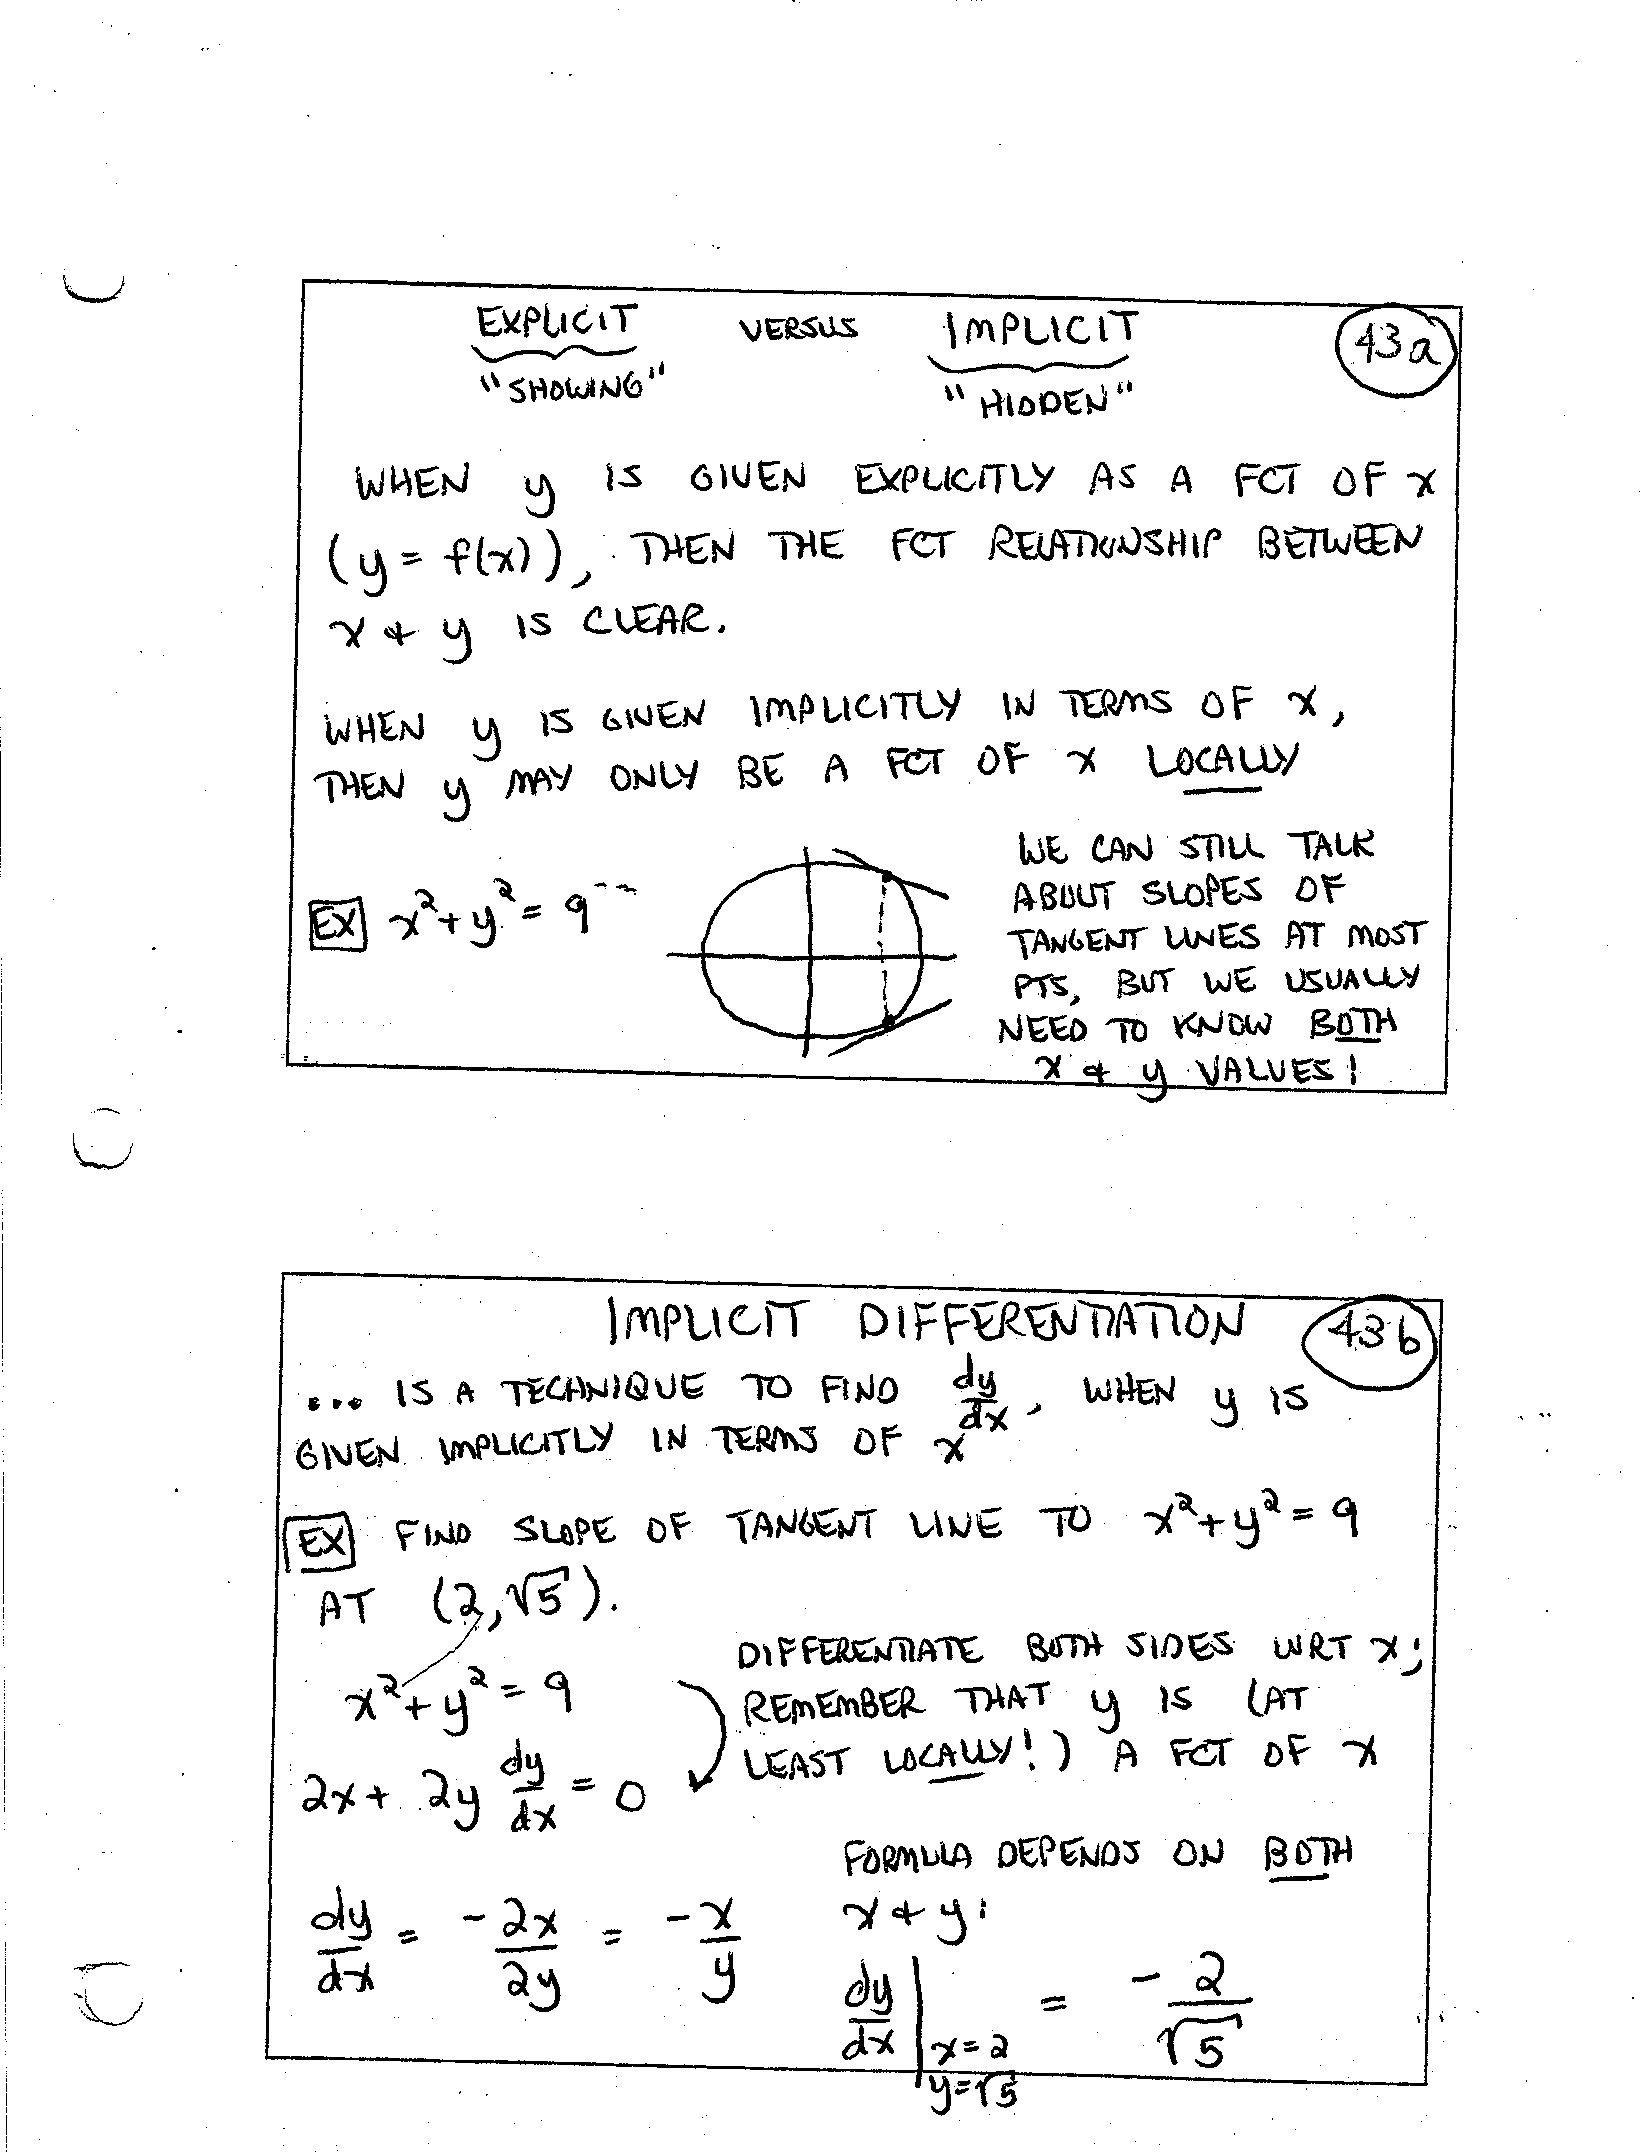 EXPLICIT VERSUS IMPLICIT 43a
"SHOWING" "HIDDEN"
WHEN y IS GIVEN EXPLICITLY AS A FCT OF x
(y = f(x)), THEN THE FCT RELATIONSHIP BETWEEN
x + y IS CLEAR.
WHEN y IS GIVEN IMPLICITLY IN TERMS OF x,
THEN y MAY ONLY BE A FCT OF x LOCALLY
EX x² + y² = 9
WE CAN STILL TALK
ABOUT SLOPES OF
TANGENT LINES AT MOST
PTS, BUT WE USUALLY
NEED TO KNOW BOTH
x + y VALUES!
IMPLICIT DIFFERENTIATION 43b
... IS A TECHNIQUE TO FIND dy/dx, WHEN y IS
GIVEN IMPLICITLY IN TERMS OF x
EX FIND SLOPE OF TANGENT LINE TO x² + y² = 9
AT (2, √5).
x² + y² = 9
2x + 2y dy/dx = 0
DIFFERENTIATE BOTH SIDES WRT x;
REMEMBER THAT y IS (AT
LEAST LOCALLY!) A FCT OF x
dy/dx = -2x/2y = -x/y
FORMULA DEPENDS ON BOTH
x + y!
dy/dx | x=2 y=√5 = -2/√5